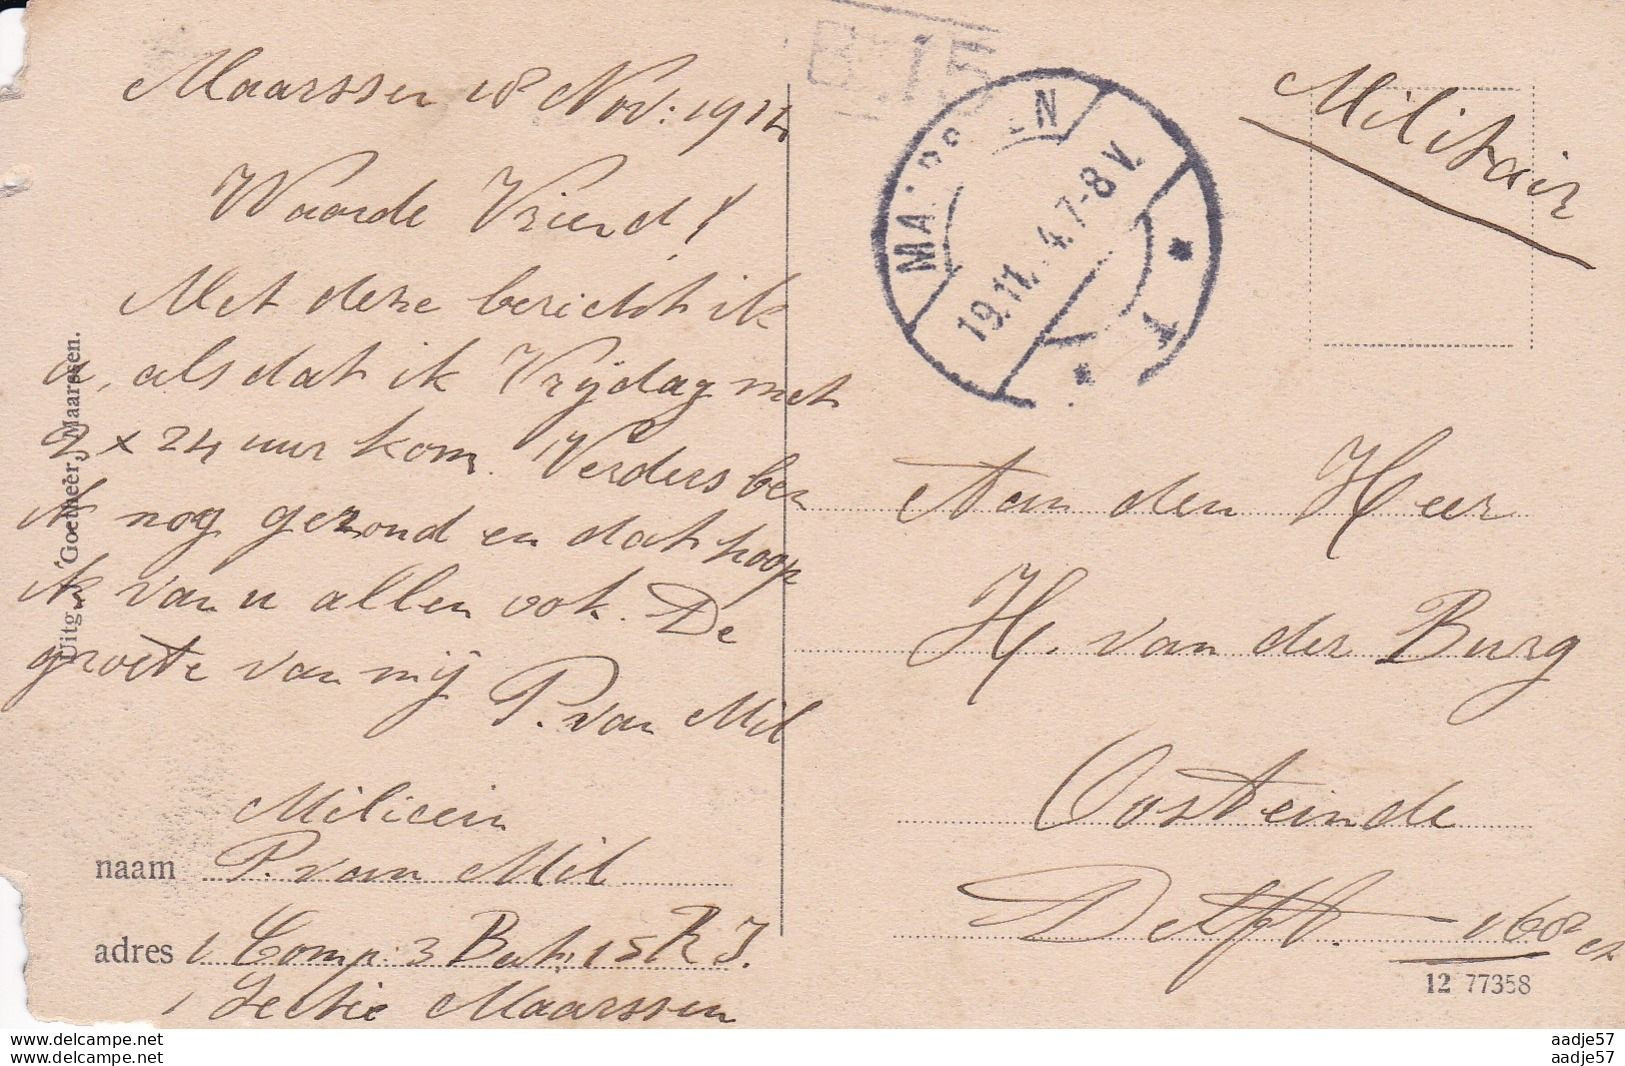 Maarssen 18 Nov: 1914
Waarde Vriend!
Met deze bericht ik
u, als dat ik Vrijdag met
2 x 24 uur kom. Verders ben
ik nog gezond en dat hoop
ik van u allen ook. De
groete van mij
P. van Mil
Milicein
naam P. van Mil
adres 1 Comp: 3 Bat: 15 R I.
1 Sectie Maarssen
Uitg.
Maarssen.
B 15
MAARSSEN
19.11. 4.7-8 V.
* 1 *
Militair
Aan den Heer
H. van der Burg
Oosteinde
Delft. 168
12 77358
www.delcampe.net
www.delcampe.net
aadje57
aadje57